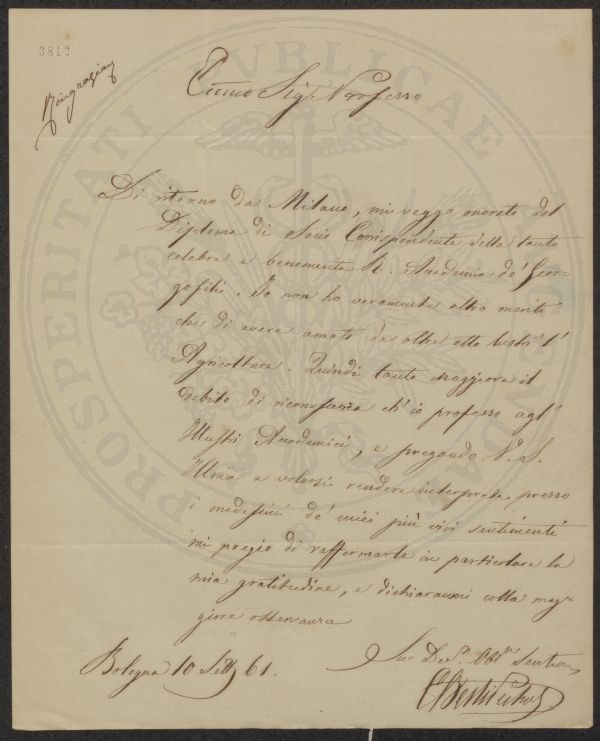 3812
Ringraziam
Ecmo Sigr Professo
Di ritorno da Milano, mi veggo onorato del
Diploma di Socio Corrispondente della tanto
celebre e benemerita R. Accademia de' Geor-
gofili. Io non ho veramente altro merito
che di avere amato da oltre otto lustri l'
Agricoltura. Quindi tanto maggiore il
debito di riconoscenza ch'io professo agl'
Illustri Accademici, e pregando V. S.
Illma a volersi rendere interprete presso
i medesimi de' miei più vivi sentimenti
mi pregio di raffermarle in particolare la
mia gratitudine, e dichiararmi colla mag-
giore osservanza
Bologna 10 Sett. 61.
Suo Devmo Obbmo Servitore
PROSPERITATI PUBLICAE AUGENDAE